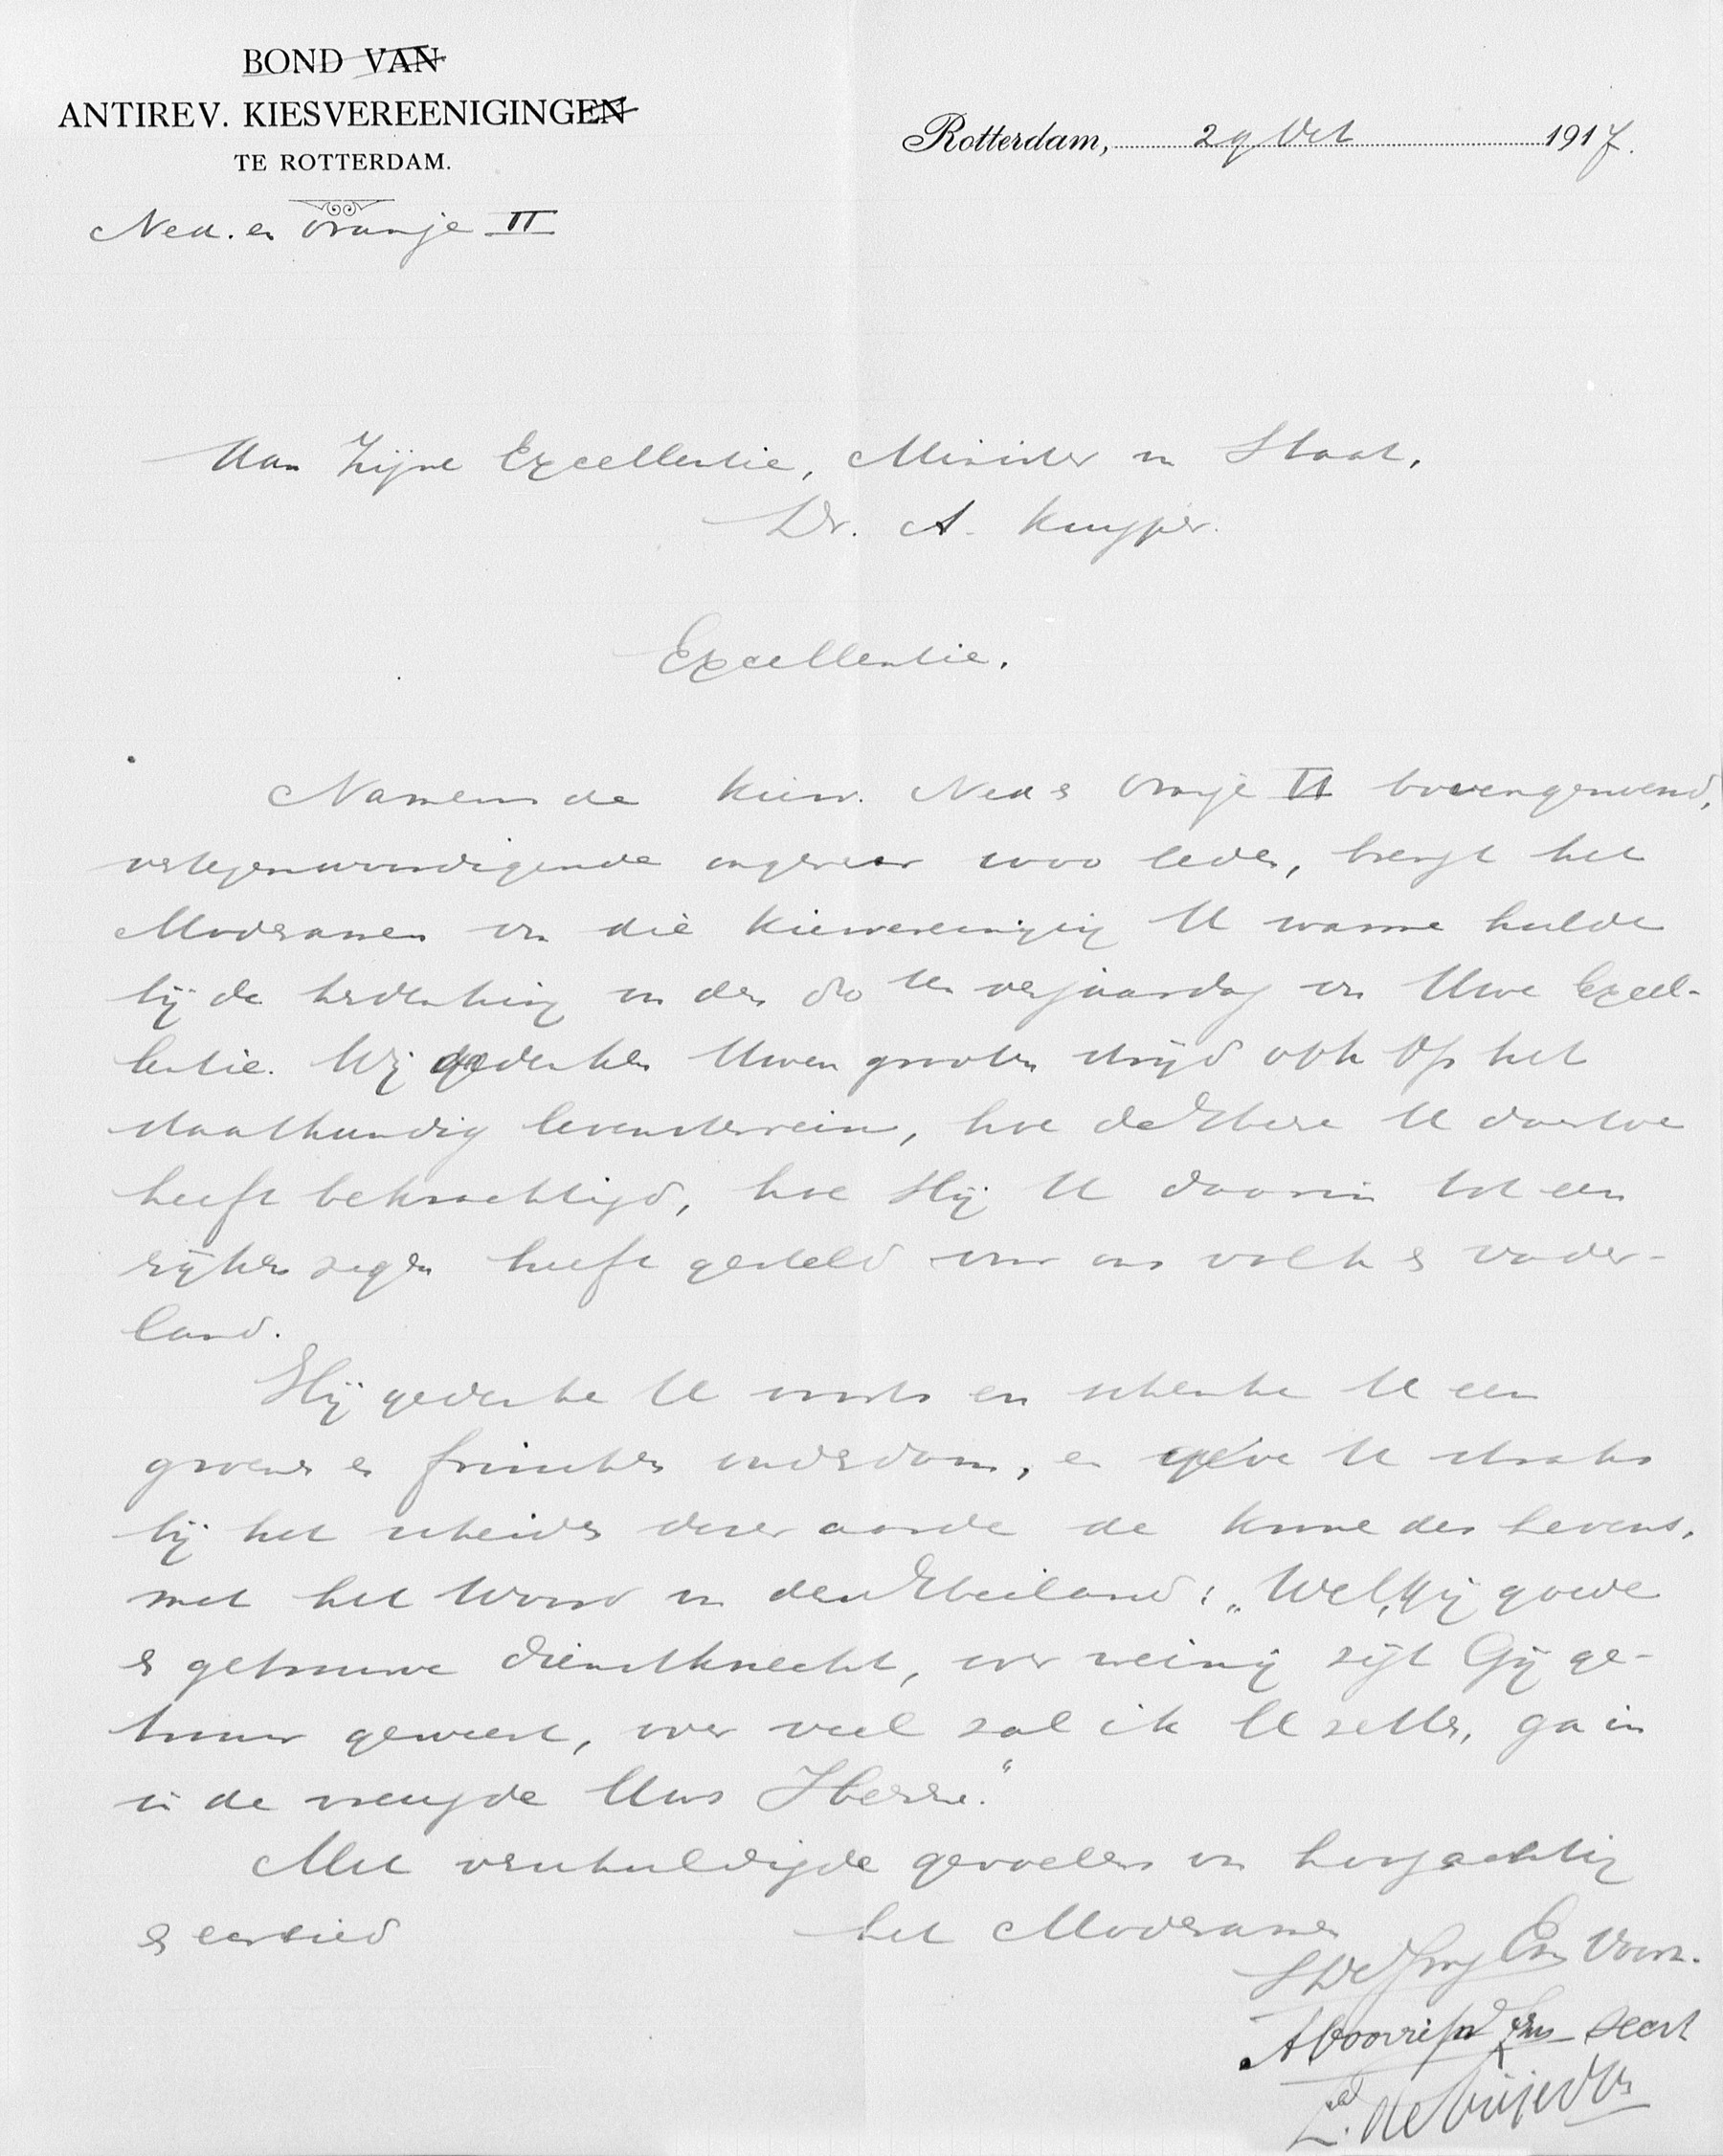 BOND VAN
ANTIREV. KIESVEREENIGINGEN
TE ROTTERDAM.
Ned. en Oranje II
Rotterdam, 29 Oct 1917.
Aan Zijne Excellentie, Minister van Staat,
Dr. A. Kuyper.
Excellentie.
Namens de kiesv. Ned & Oranje II bovengenoemd,
vertegenwoordigende ongeveer 1000 leden, brengt het
Moderamen van die kiesvereeniging U warme hulde
bij de herdenking van den 80sten verjaardag van Uwe Excel-
lentie. Wij gedenken Uwen grooten strijd ook op het
staatkundig levensterrein, hoe de Heere U daartoe
heeft bekrachtigd, hoe Hij U daarin tot een
rijken zegen heeft gesteld voor ons volk & vader-
land.
Hij gedenke U voorts en schenke U een
groenen & frisschen ouderdom, en geve U straks
bij het scheiden dezer aarde de kroon des levens,
met het Woord van den Heiland: „Wel, gij goede
& getrouwe dienstknecht, over weinig zijt Gij ge-
trouw geweest, over veel zal ik U zetten, ga in
in de vreugde Uws Heeren."
Met verschuldigde gevoelens van hoogachting
& eerbied
het Moderamen
Voorz.
Secret
L. de